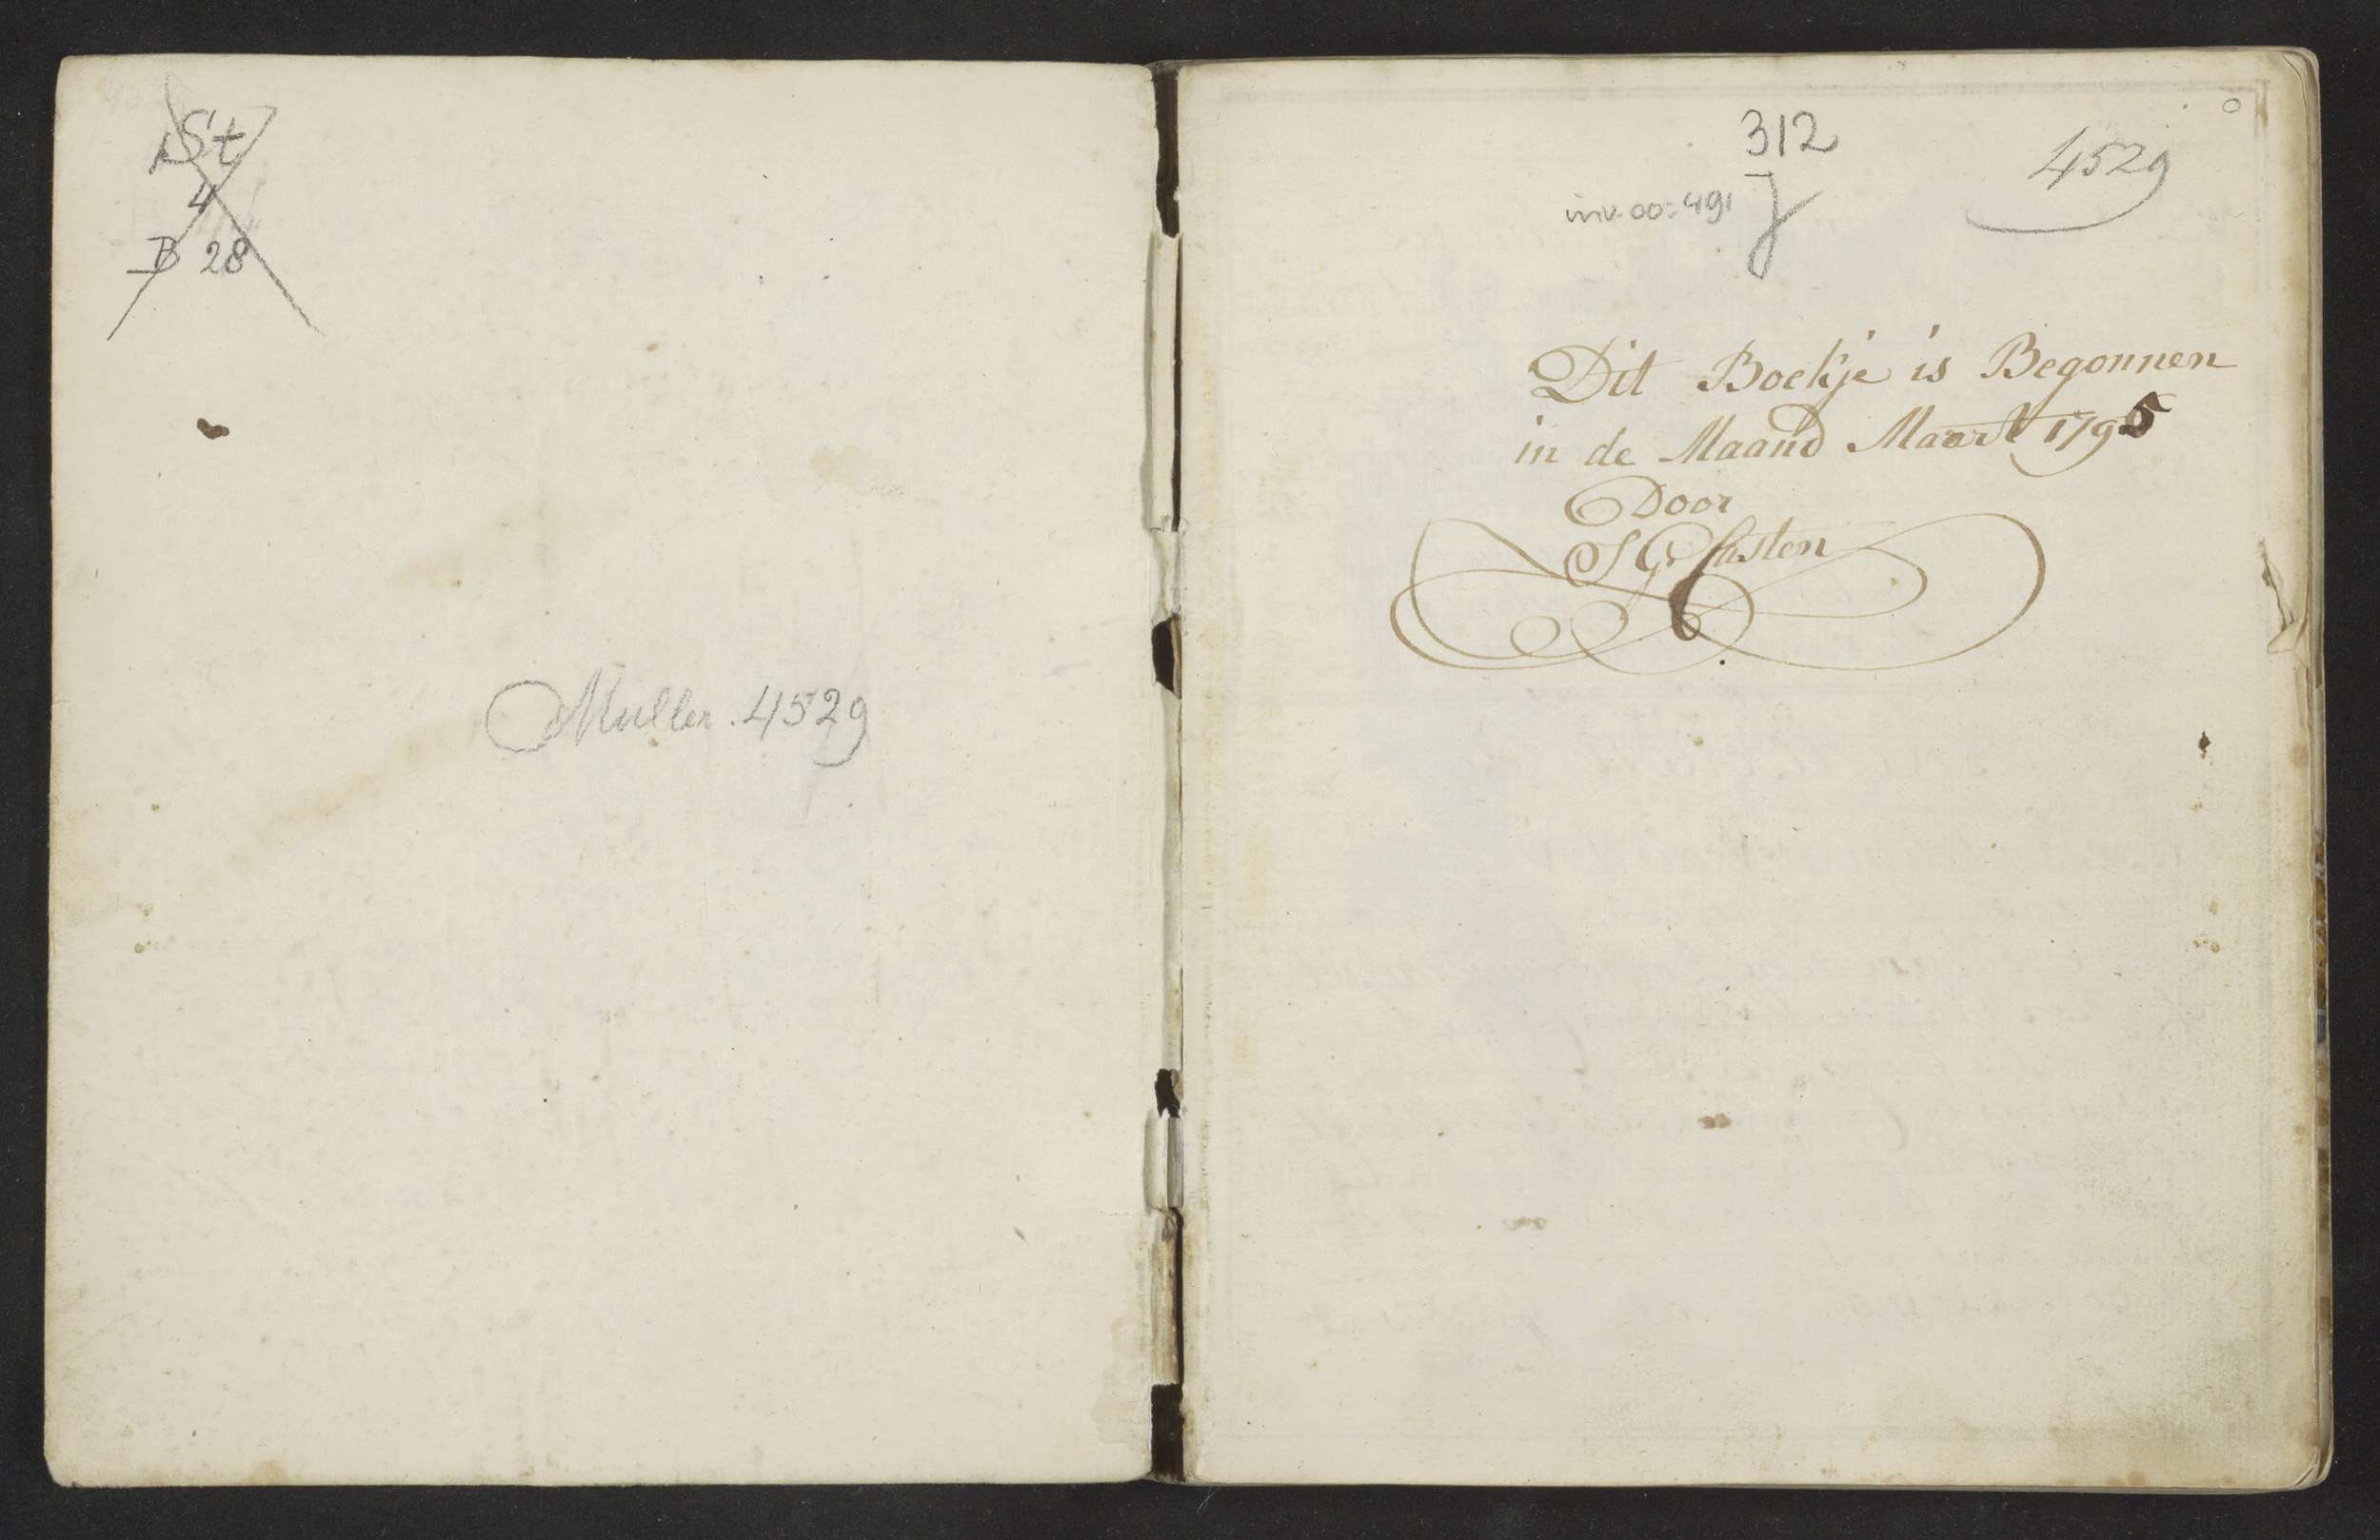 St
4
B 28
Muller. 4529
312
J
inv. 00:491
4529
Dit Boekje is Begonnen
in de Maand Maart 1795
Door